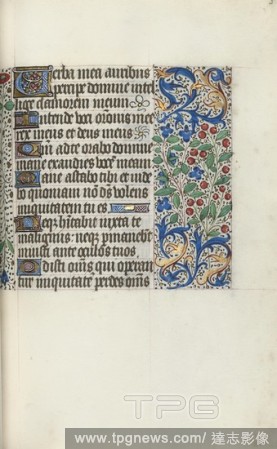 Verba mea auribus
percipe domine intel
lige clamorem meum
Intende voci orationis mee
rex meus et deus meus
Qm ad te orabo domine
mane exaudies vocē meam
Mane astabo tibi et vide
bo quoniam nō dˢ volens
iniquitatem tu es
Neqꝫ hītabit iuxta te
malignus: neqꝫ pmanebūt
iniusti ante oculos tuos
Odisti oīns qui operan
tur iniquitatē perdes oīns
TPG
www.tpgnews.com/達志影像